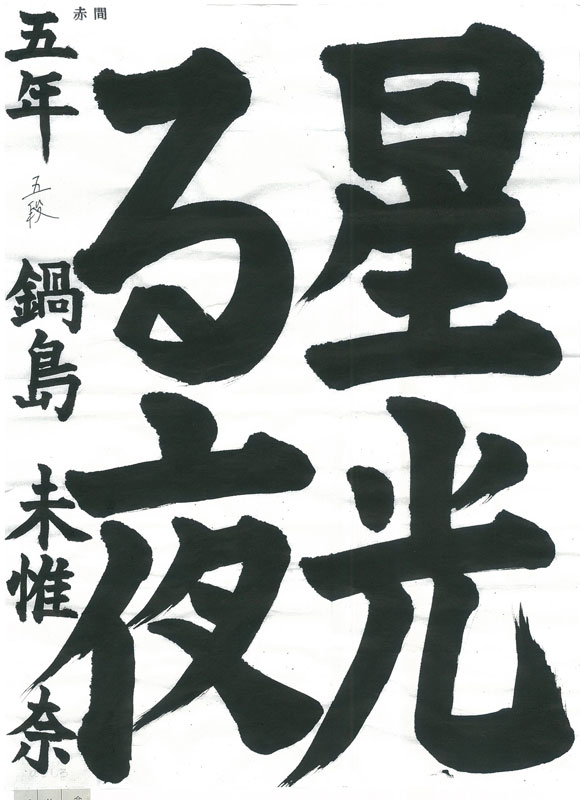 星光
る夜
赤間
五年 五段 鍋島 未惟奈